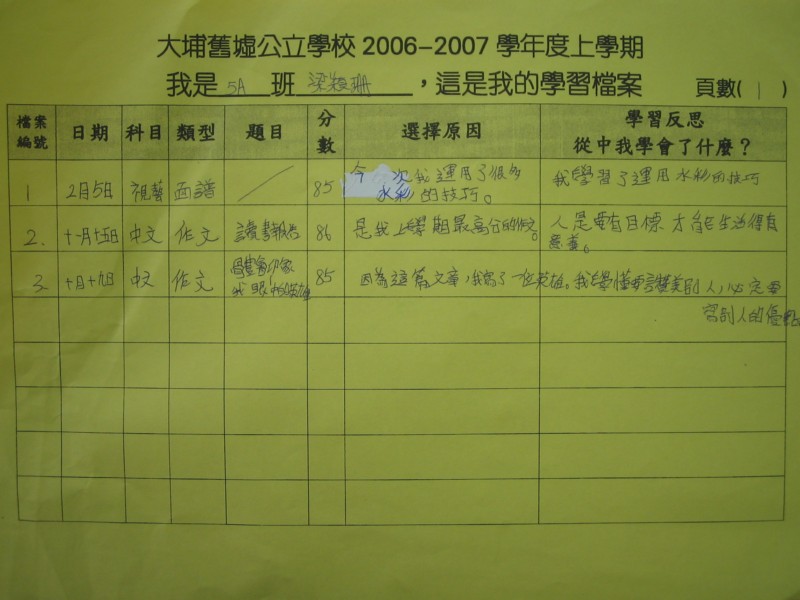 大埔舊墟公立學校 2006-2007 學年度上學期
我是 5A 班 梁穎珊 ，這是我的學習檔案 頁數( 1 )
檔案編號 日期 科目 類型 題目 分數 選擇原因 學習反思 從中我學會了什麼？
1 2月5日 視藝 面譜 ／ 85 今次我運用了很多水彩的技巧。 我學習了運用水彩的技巧
2. 十一月十五日 中文 作文 讀書報告 86 是我上學期最高分的作文。 人是要有目標才能生活得有意義。
3. 十月十九日 中文 作文 我眼中的英雄 85 因為這篇文章，我寫了一位英雄。 我學懂要讚美別人，必定要寫別人的優點